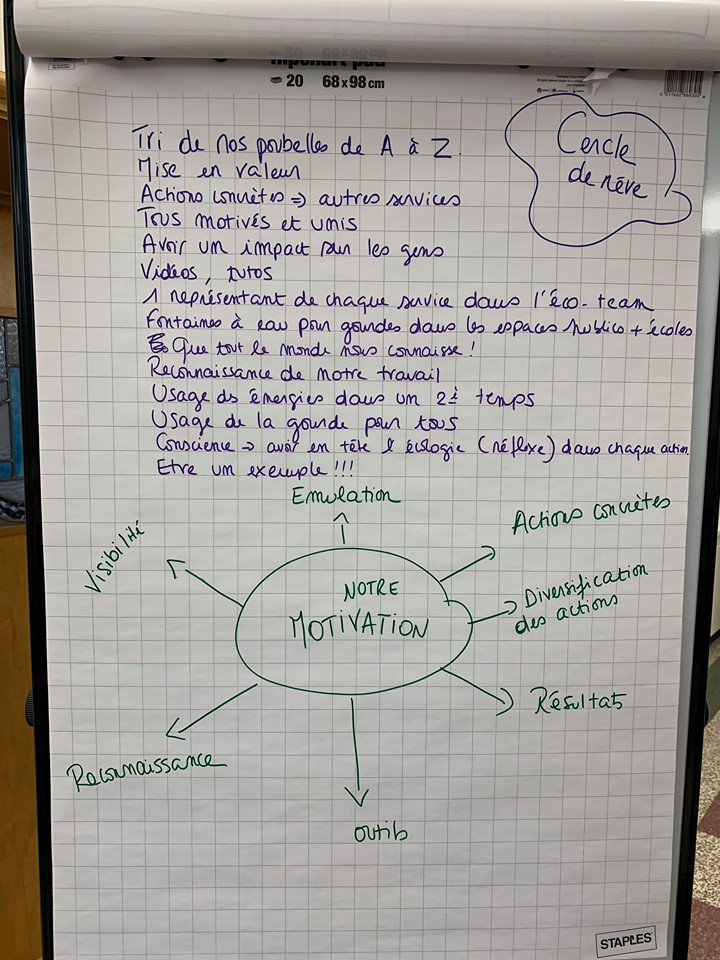 flipchart pad
20 68 x 98 cm
Cercle
de rêve
Tri de nos poubelles de A à Z.
Mise en valeur
Actions concrètes => autres services
Tous motivés et unis
Avoir un impact sur les gens
Vidéos, tutos
1 représentant de chaque service dans l'éco-team
Fontaines à eau pour gourdes dans les espaces publics + écoles
Que tout le monde nous connaisse !
Reconnaissance de notre travail
Usage des énergies dans un 2è temps
Usage de la gourde pour tous
Conscience => avoir en tête l'écologie (réflexe) dans chaque action
Etre un exemple !!!
Emulation
Actions concrètes
Visibilité
Diversification
des actions
NOTRE
MOTIVATION
Résultats
Reconnaissance
outils
STAPLES